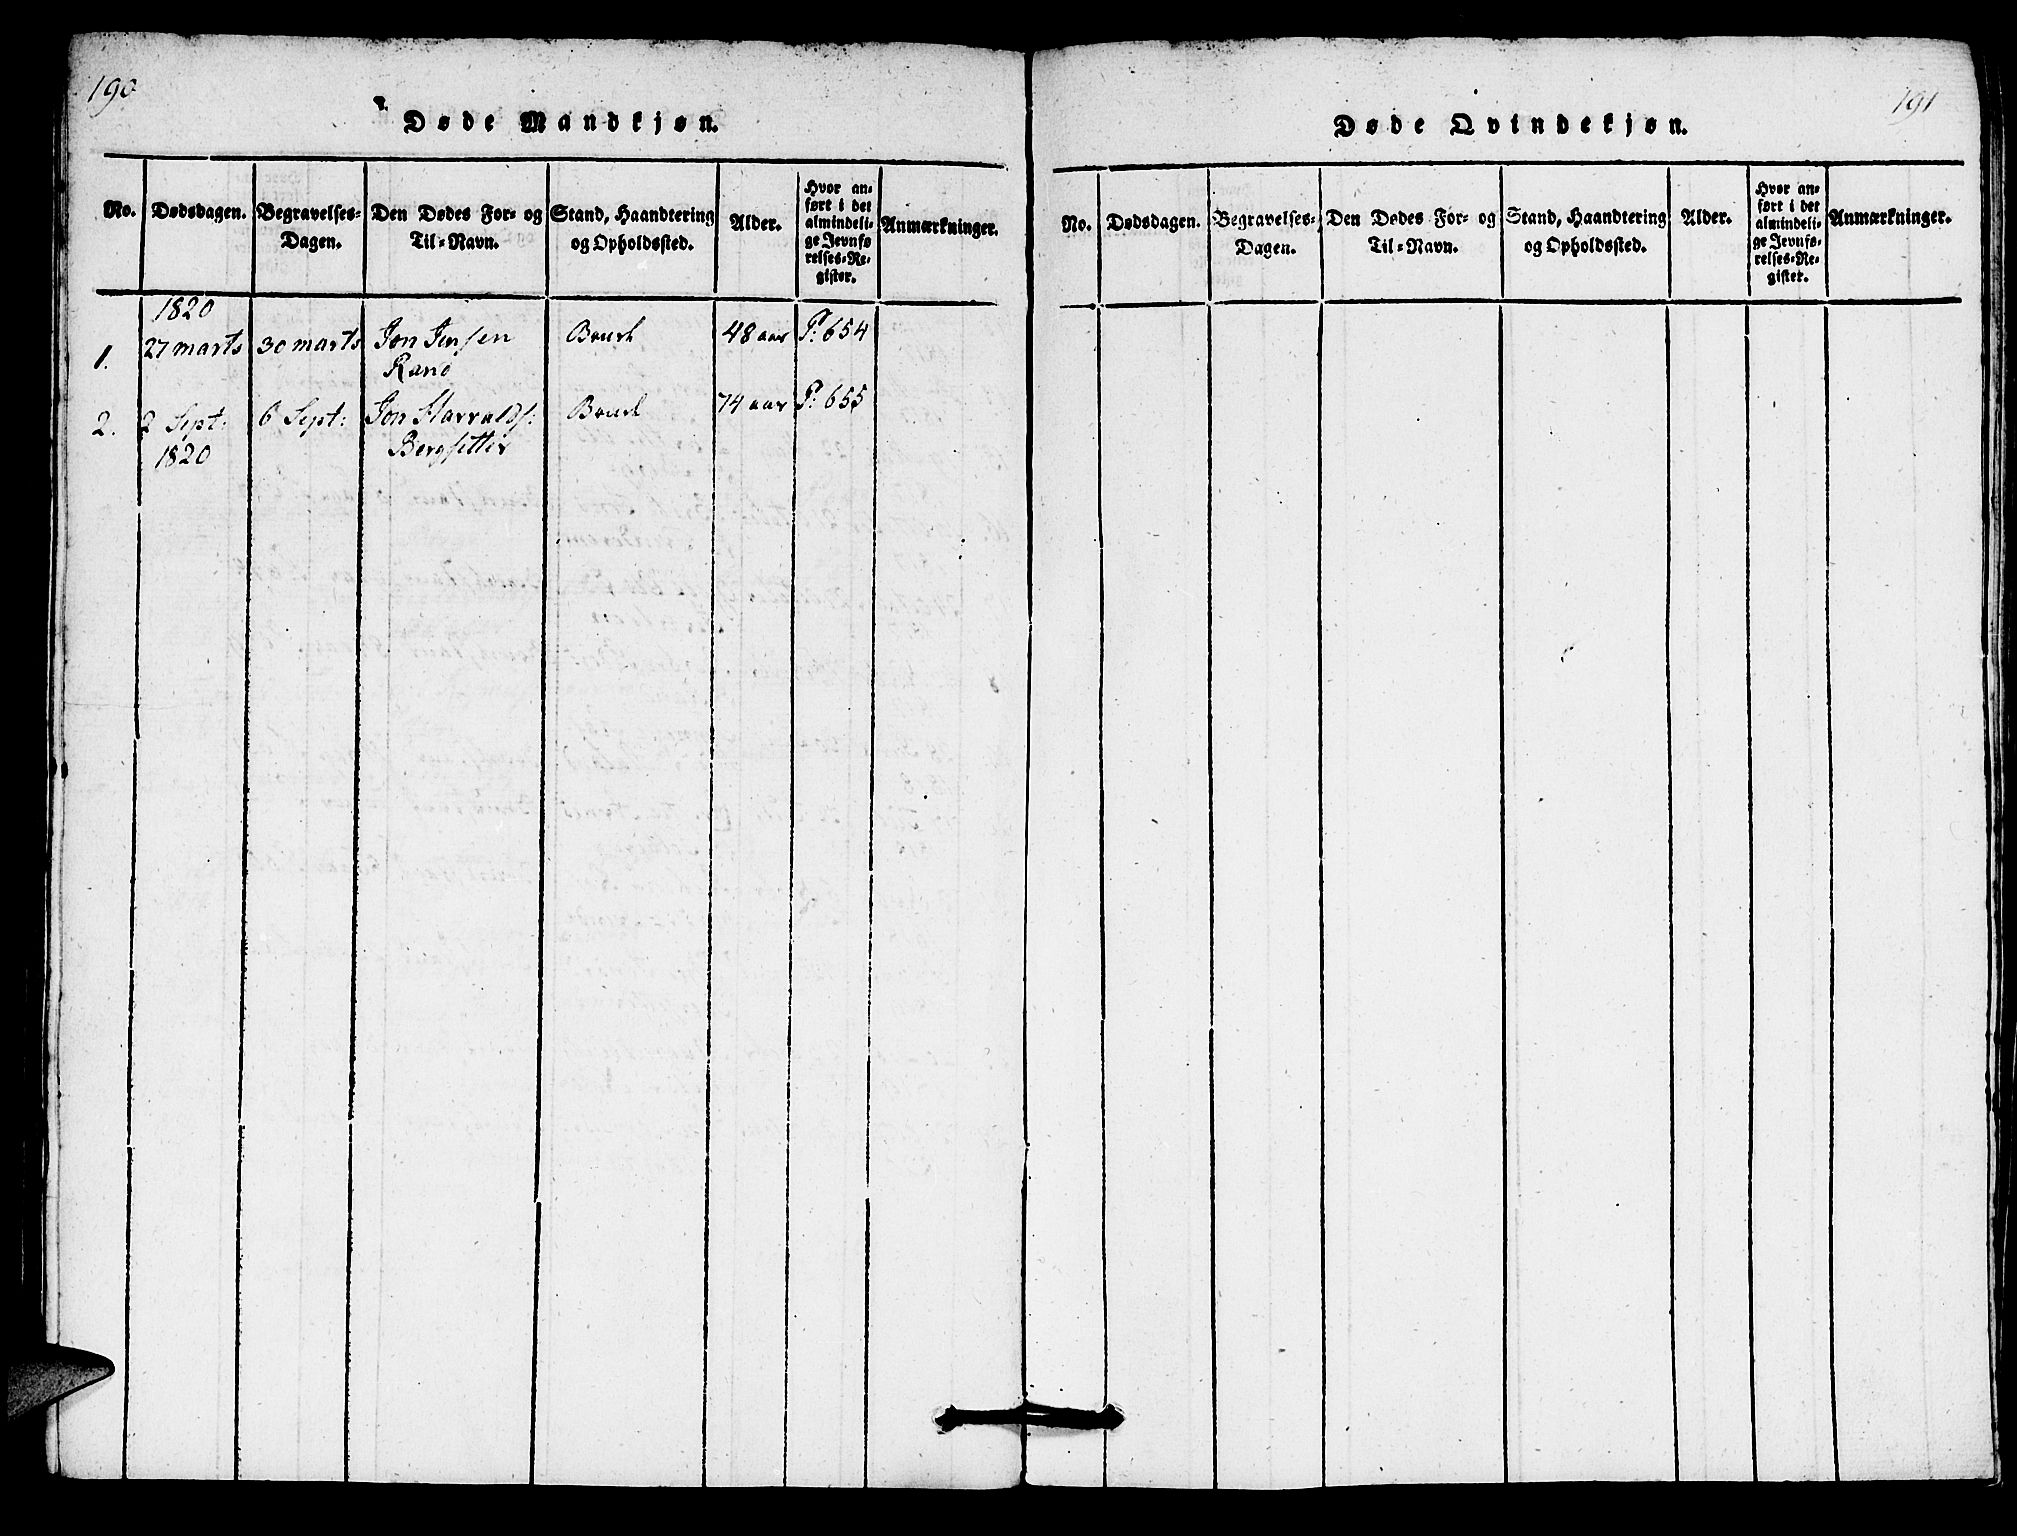 190
Døde Mandkjøn.
No.
Dødsdagen.
Begravelses-
Dagen.
Den Dødes For- og
Til-Navn.
Stand, Haandtering
og Opholdssted.
Alder.
Hvor an-
ført i det
almindeli-
ge Jevnfø
relses-Re-
gister.
Anmærkninger.
1820
1.
27 marts
30 marts
Jon Jensen
Rand
48 aar
P: 654
2.
2 Sept:
1820
6 Sept:
Jon Harralds:
Bergsetter
74 aar
P: 655
191
Døde Qvindekjøn.
No.
Dødsdagen.
Begravelses-
Dagen.
Den Dødes For- og
Til-Navn.
Stand, Haandtering
og Opholdssted.
Alder.
Hvor an-
ført i det
almindeli-
ge Jevnfø-
relses-Re-
gister.
Anmærkninger.